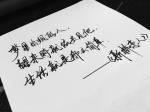 梦里出现的人，
醒来时就该去见他，
生活就是那么简单。